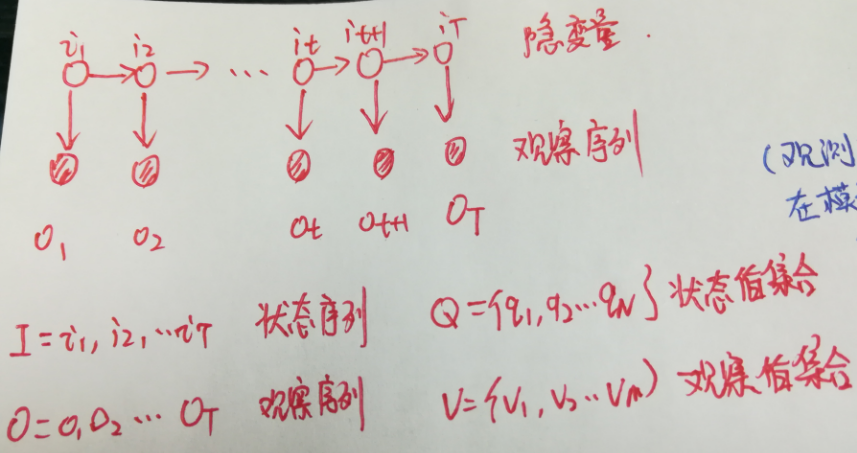 i1 i2 ... it it+1 iT 隐变量.
观察序列
(观测
O1 O2 Ot Ot+1 OT
在模
I=i1, i2, ...iT 状态序列 Q={q1, q2...qN} 状态值集合
O=O1O2 ... OT 观察序列 V={V1, V2...Vm) 观察值集合